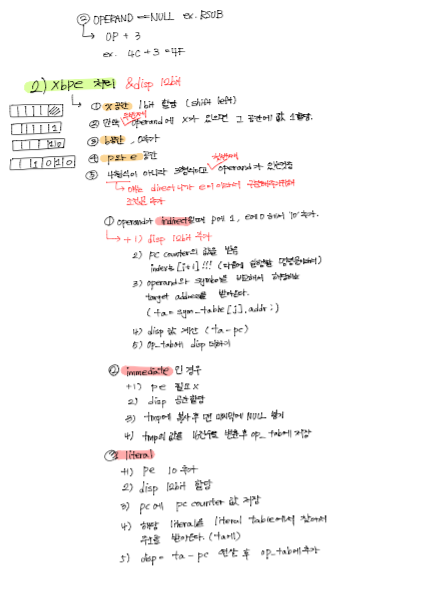 ② OPERAND == NULL ex. RSUB
↳ OP + 3
ex. 4C + 3 = 4F
2) Xbpe 처리 & disp 12bit
① X 공간 1bit 할당 (shift left)
② 만약 operand에 X가 있으면 그 공간에 값 1할당.
③ b공간, 0추가
④ p와 e 공간
⑤ 4형식이 아니라 3형식이고 operand가 있을경우
① operand가 indirect일때 p에 1, e에 0 해서 10 추가.
+1) disp 12bit 추가
2) PC counter의 값을 받음
index는 [i+1]!!! (다음에 실행할 명령어이므로)
3) operand와 symbol을 비교해서 해당하는
target address를 받아온다.
(ta = sym_table[j].addr;)
4) disp 값 계산 (ta - pc)
5) op_tab에 disp 더하기
② immediate 인 경우
+1) pe 필요 X
2) disp 공간할당
3) tmp에 복사 후 맨 마지막에 NULL 넣기
4) tmp의 값을 16진수로 변환 후 op_tab에 저장
③ literal
+1) pe 10 추가
2) disp 12bit 할당
3) pc에 pc counter 값 저장
4) 해당 literal을 literal table에서 찾아서
주소를 받아온다. (ta에)
5) disp = ta - pc 연산 후 op_tab에 추가